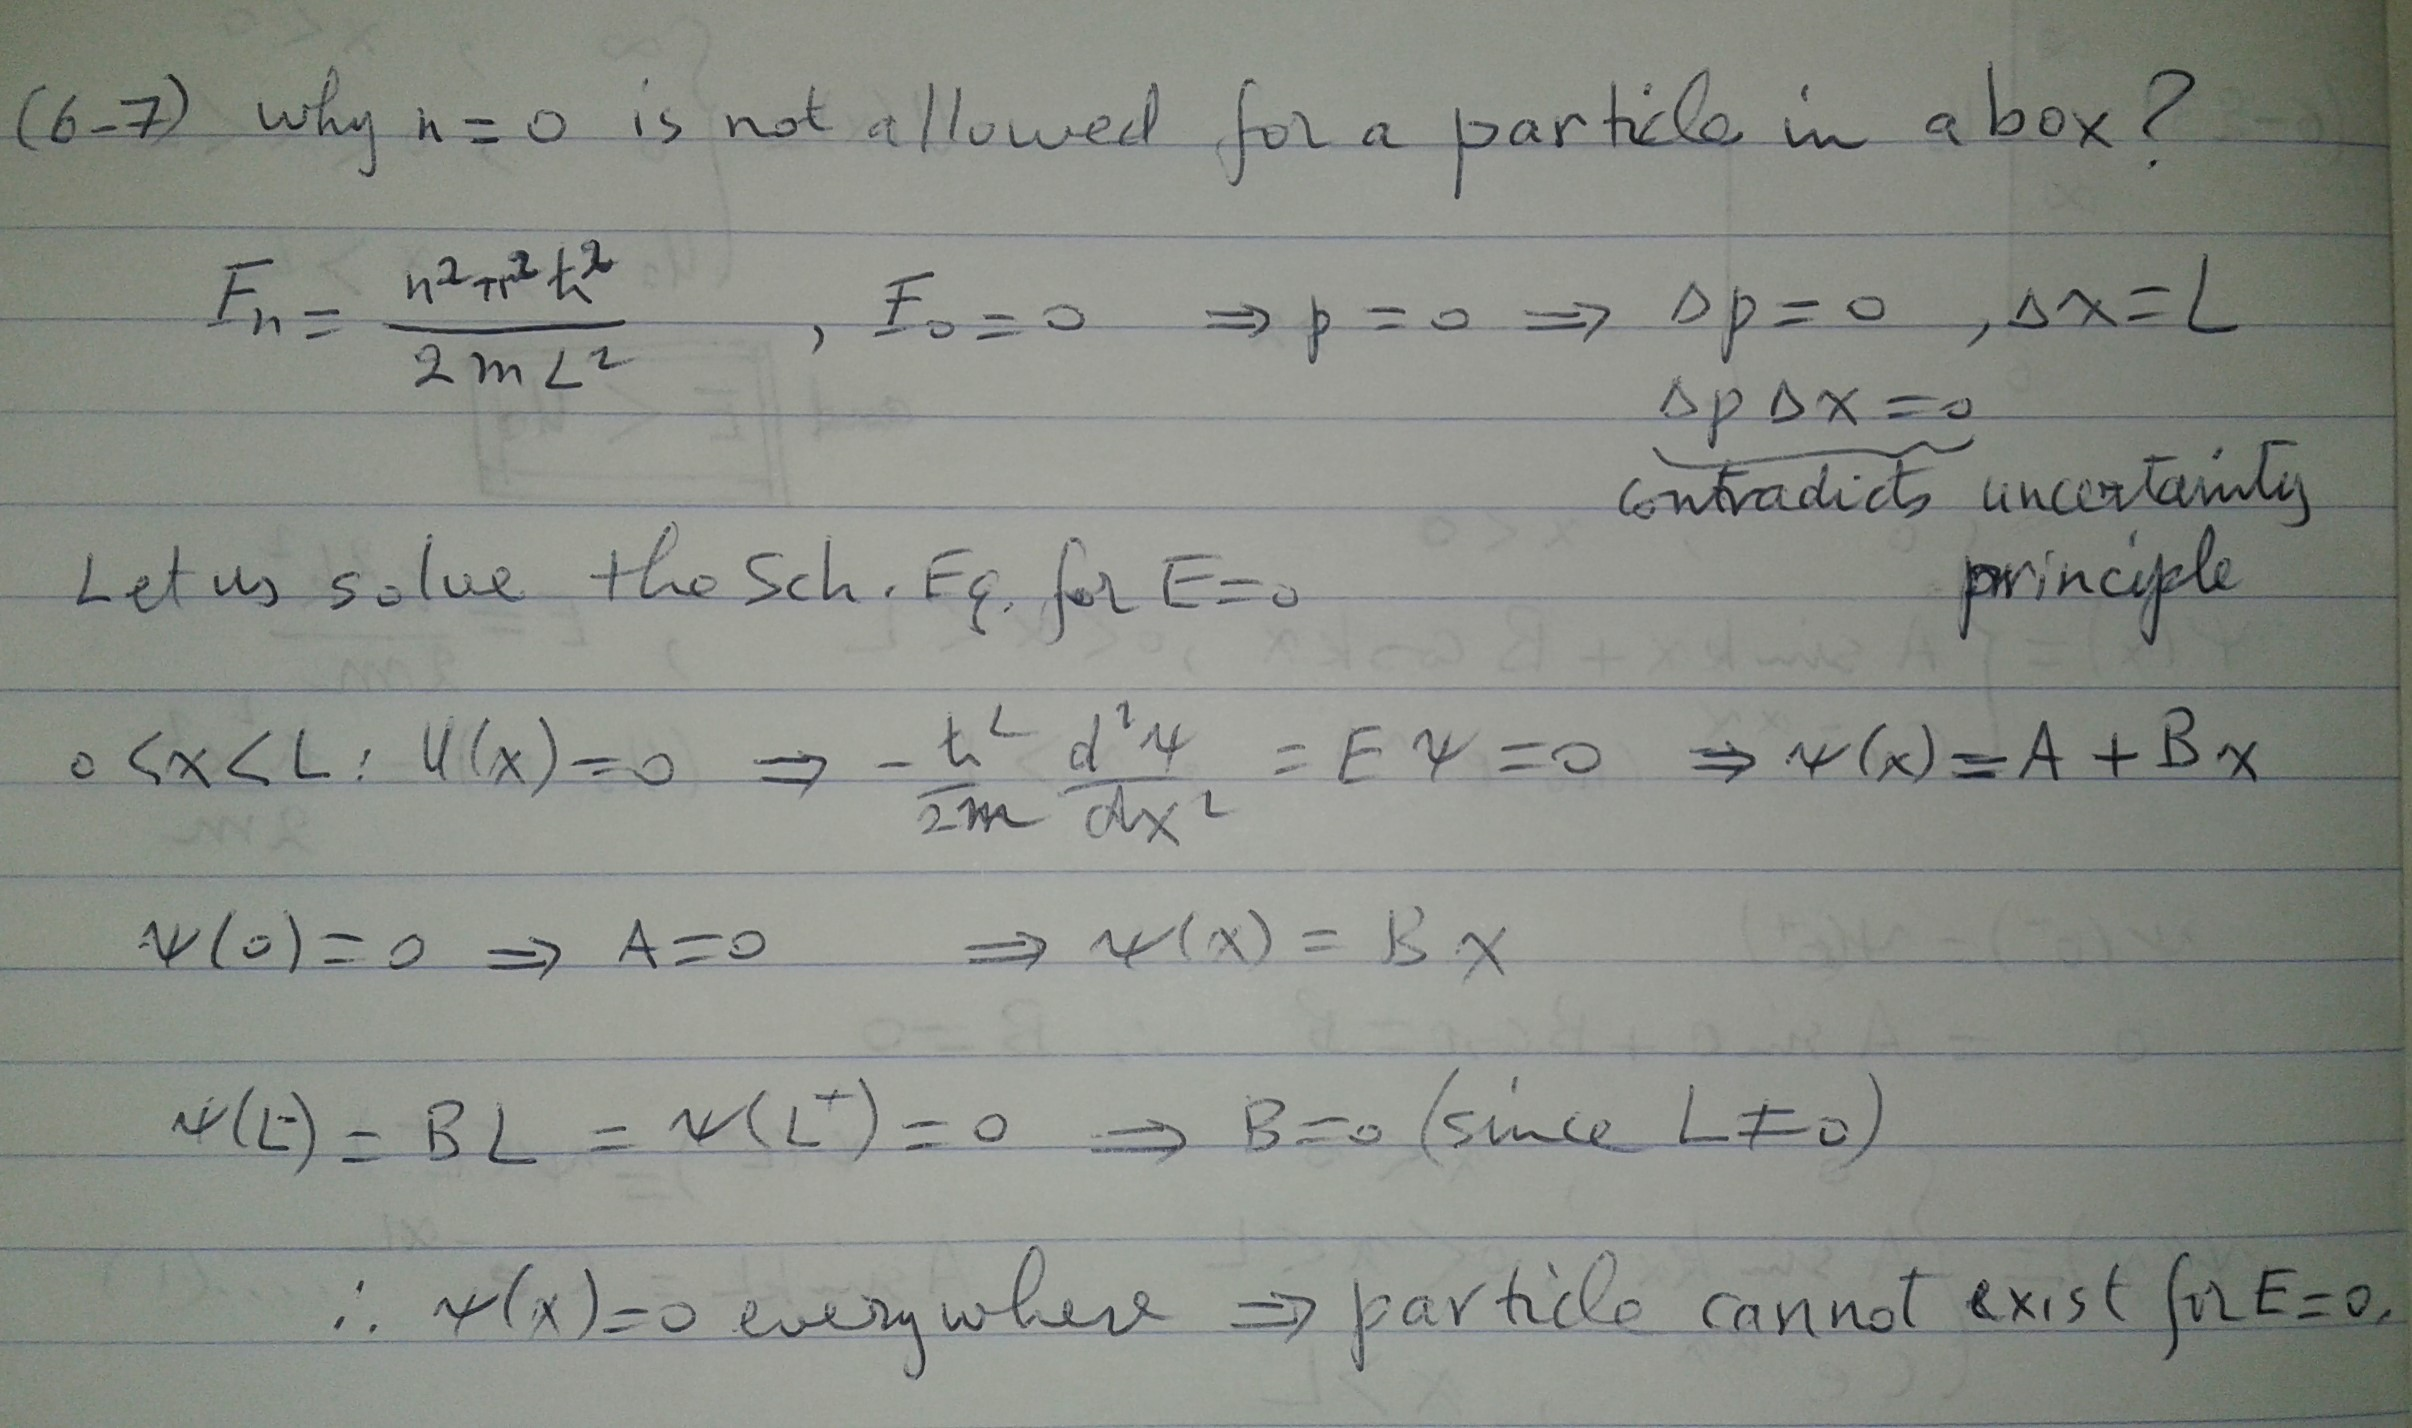 (6-7) why n=0 is not allowed for a particle in a box?
Eₙ = n²π²ħ² / 2mL² , E₀=0 ⇒ p=0 ⇒ Δp=0 , Δx=L
ΔpΔx=0
contradicts uncertainty
principle
Let us solve the Sch. Eq. for E=0
0<x<L: U(x)=0 ⇒ -ħ²/2m d²ψ/dx² = Eψ=0 ⇒ ψ(x)=A+Bx
ψ(0)=0 ⇒ A=0 ⇒ ψ(x)=Bx
ψ(L⁻)=BL=ψ(L⁺)=0 ⇒ B=0 (since L≠0)
∴ ψ(x)=0 everywhere ⇒ particle cannot exist for E=0.